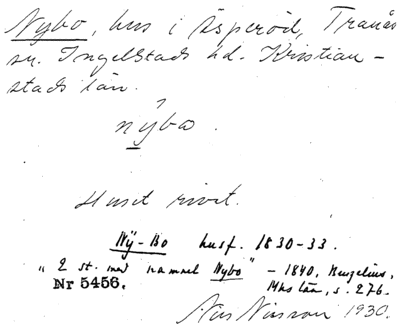 Nybo, hus i Äsperöd, Tranås
sn. Ingelstads hd. Kristian-
stads län.
nybo.
Huset rivet.
Nÿ-Bo husf. 1830-33.
"2 st. med namnet Nybo" - 1840,
Nr 5456. Mhs län, s. 276.
Nils Nilsson 1930.